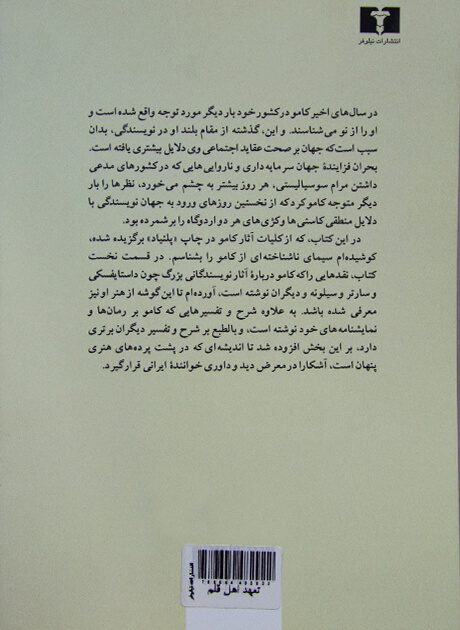 انتشارات نیلوفر
در سال‌های اخیر کامو در کشور خود بار دیگر مورد توجه واقع شده است و
او را از نو می‌شناسند. و این، گذشته از مقام بلند او در نویسندگی، بدان
سبب است که جهان بر صحت عقاید اجتماعی وی دلایل بیشتری یافته است.
بحران فزایندهٔ جهان سرمایه‌داری و ناروایی‌هایی که در کشورهای مدعی
داشتن مرام سوسیالیستی، هر روز بیشتر به چشم می‌خورد، نظرها را بار
دیگر متوجه کامو کرد که از نخستین روزهای ورود به جهان نویسندگی با
دلایل منطقی کاستی‌ها و کژی‌های هر دو اردوگاه را برشمرده بود.
در این کتاب، که از کلیات آثار کامو در چاپ «پلئیاد» برگزیده شده،
کوشیده‌ام سیمای ناشناخته‌ای از کامو را بشناسم. در قسمت نخست
کتاب، نقدهایی را که کامو دربارهٔ آثار نویسندگانی بزرگ چون داستایفسکی
و سارتر و سیلونه و دیگران نوشته است، آورده‌ام تا این گوشه از هنر او نیز
معرفی شده باشد. به علاوه شرح و تفسیرهایی که کامو بر رمان‌ها و
نمایشنامه‌های خود نوشته است، و بالطبع بر شرح و تفسیر دیگران برتری
دارد، بر این بخش افزوده شد تا اندیشه‌ای که در پشت پرده‌های هنری
پنهان است، آشکارا در معرض دید و داوری خوانندهٔ ایرانی قرار گیرد.
تعهد اهل قلم